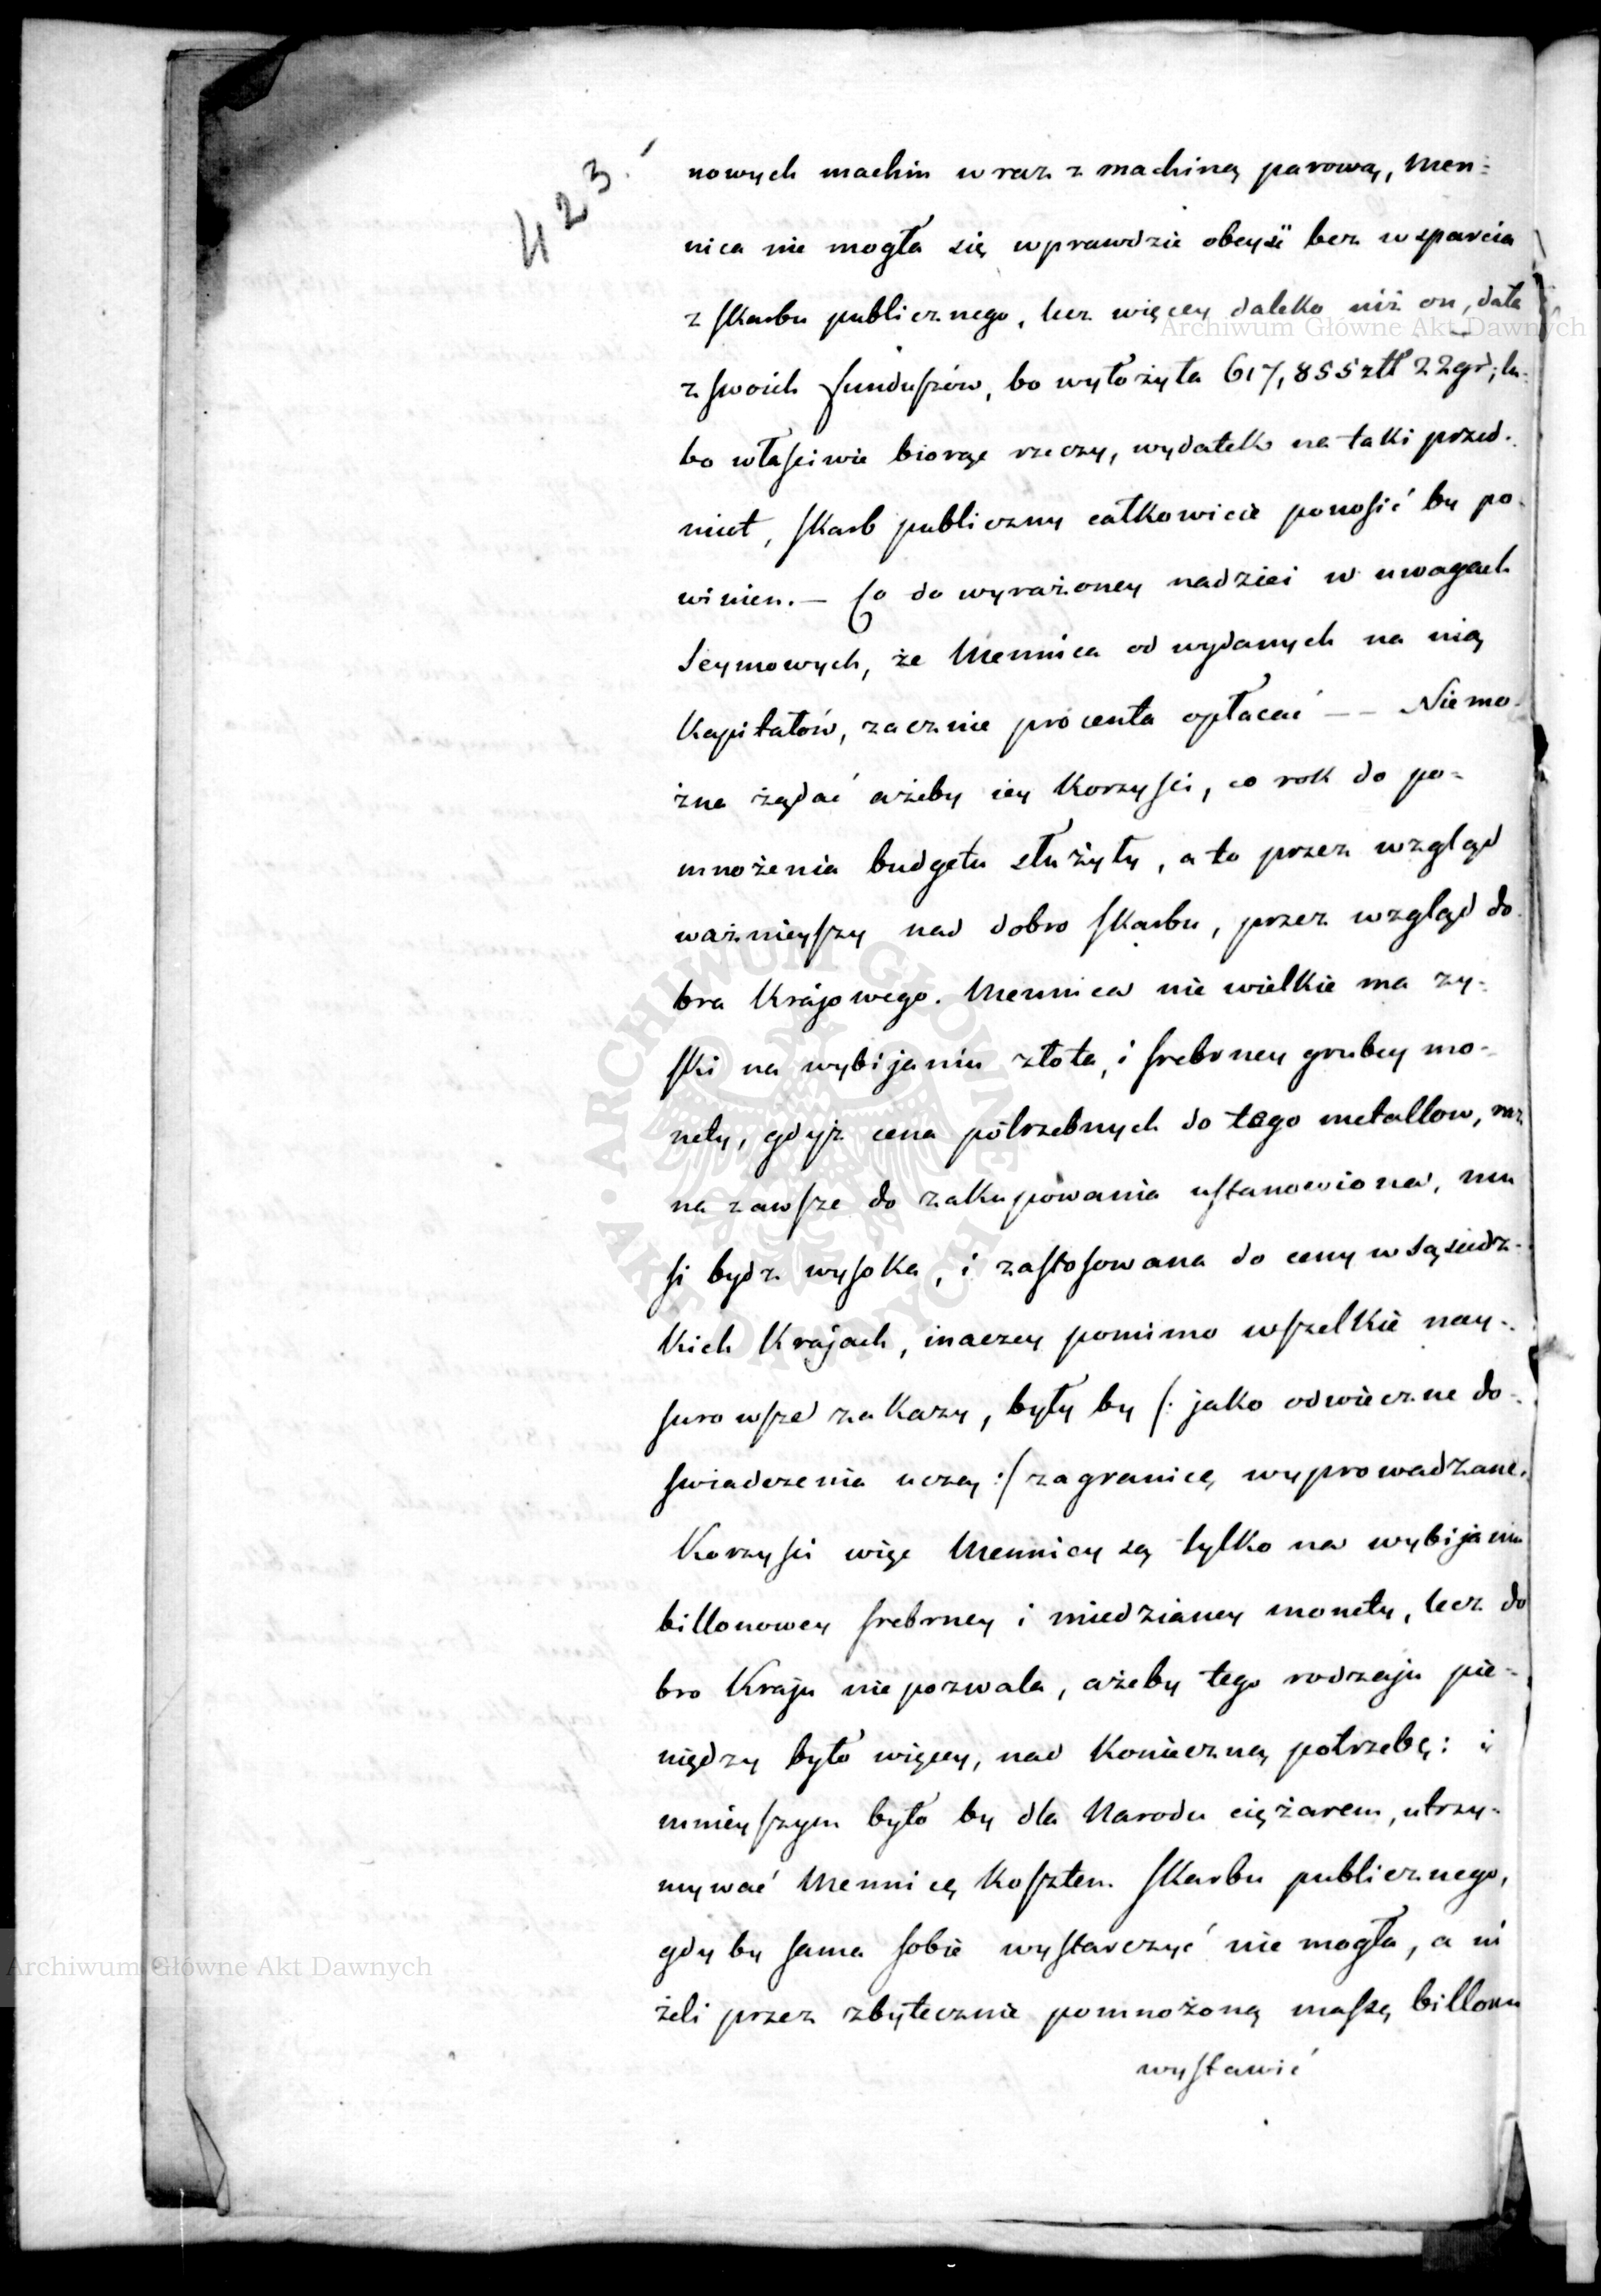 423.
nowych machin wraz z machiną parową, Men-
nica nie mogła się wprawdzie obeyść bez wsparcia
z skarbu publicznego, lecz więcey daleko niż on, dała
z swoich funduszów, bo wyłożyła 617,855 złł 22 gr; lu-
bo właściwie biorąc rzeczy, wydatek na taki przed-
miot, skarb publiczny całkowicie ponosić by po-
winien. — Co do wyrażoney nadziei w uwagach
Seymowych, że Mennica od wydanych na nią
Kapitałów, zacznie procenta opłacać — — Niemo-
żna żądać ażeby iey Korzyści, co rok do po-
mnożenia budgetu służyły, a to przez wzgląd
ważnieyszy nad dobro skarbu, przez wzgląd do-
bra Krajowego. Mennica nie wielkie ma zy-
ski na wybijaniu złota, i srebrney grubey mo-
nety, gdyż cena potrzebnych do tego metallow, raz
na zawsze do zakupowania ustanowiona, mu
si bydz wysoka, i zastosowana do ceny w sąsiedz-
kich Krajach, inaczey pomimo wszelkie nay-
surowsze zakazy, były by /: jako odwieczne do-
swiadczenia uczą :/ zagranicę wyprowadzane.
Korzyści więc Mennicy są tylko na wybijaniu
billonowey srebrney i miedzianey monety, lecz do
bro Kraju nie pozwala, ażeby tego rodzaju pie-
niędzy było więcey, nad Konieczną potrzebę: i
mnieyszym było by dla Narodu ciężarem, utrzy-
mywać Mennicę Kosztem skarbu publicznego,
gdy by sama sobie wystarczyć nie mogła, a ni
żeli przez zbytecznie pomnożoną massę billonu
wystawić
Archiwum Główne Akt Dawnych
Archiwum Główne Akt Dawnych
ARCHIWUM GŁÓWNE AKT DAWNYCH